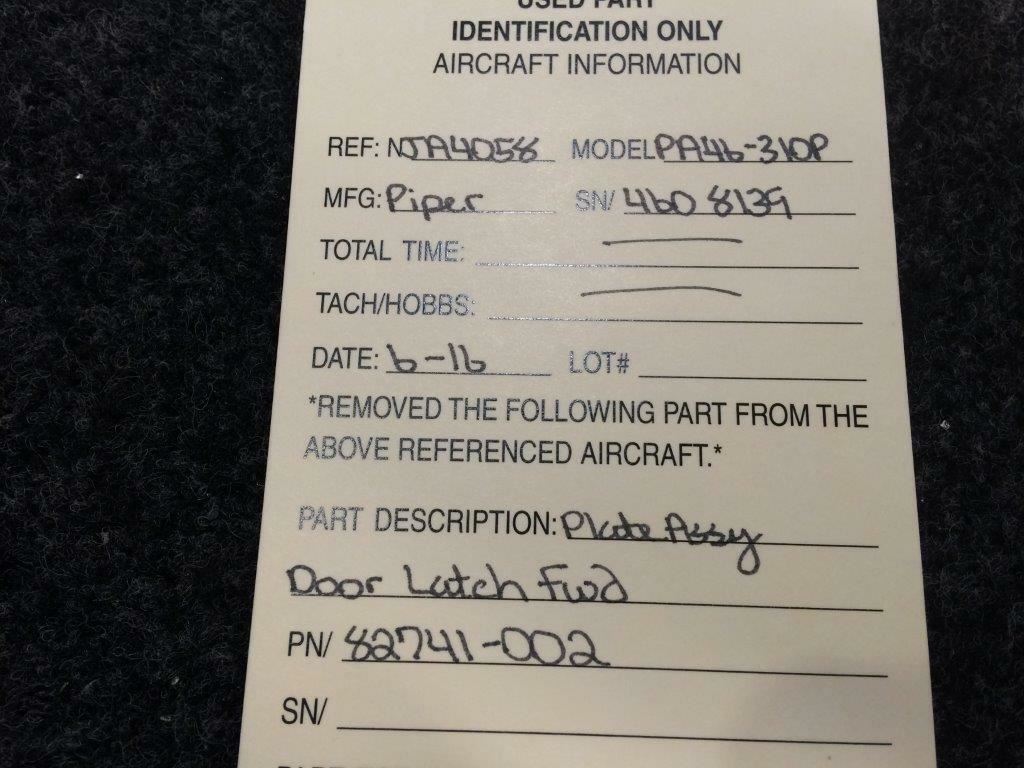 USED PART
IDENTIFICATION ONLY
AIRCRAFT INFORMATION
REF: NJA4058 MODEL PA46-310P
MFG: Piper SN/ 460 8139
TOTAL TIME:
TACH/HOBBS:
DATE: 6-16 LOT#
*REMOVED THE FOLLOWING PART FROM THE
ABOVE REFERENCED AIRCRAFT.*
PART DESCRIPTION: Plate Assy
Door Latch Fwd
PN/ 82741-002
SN/